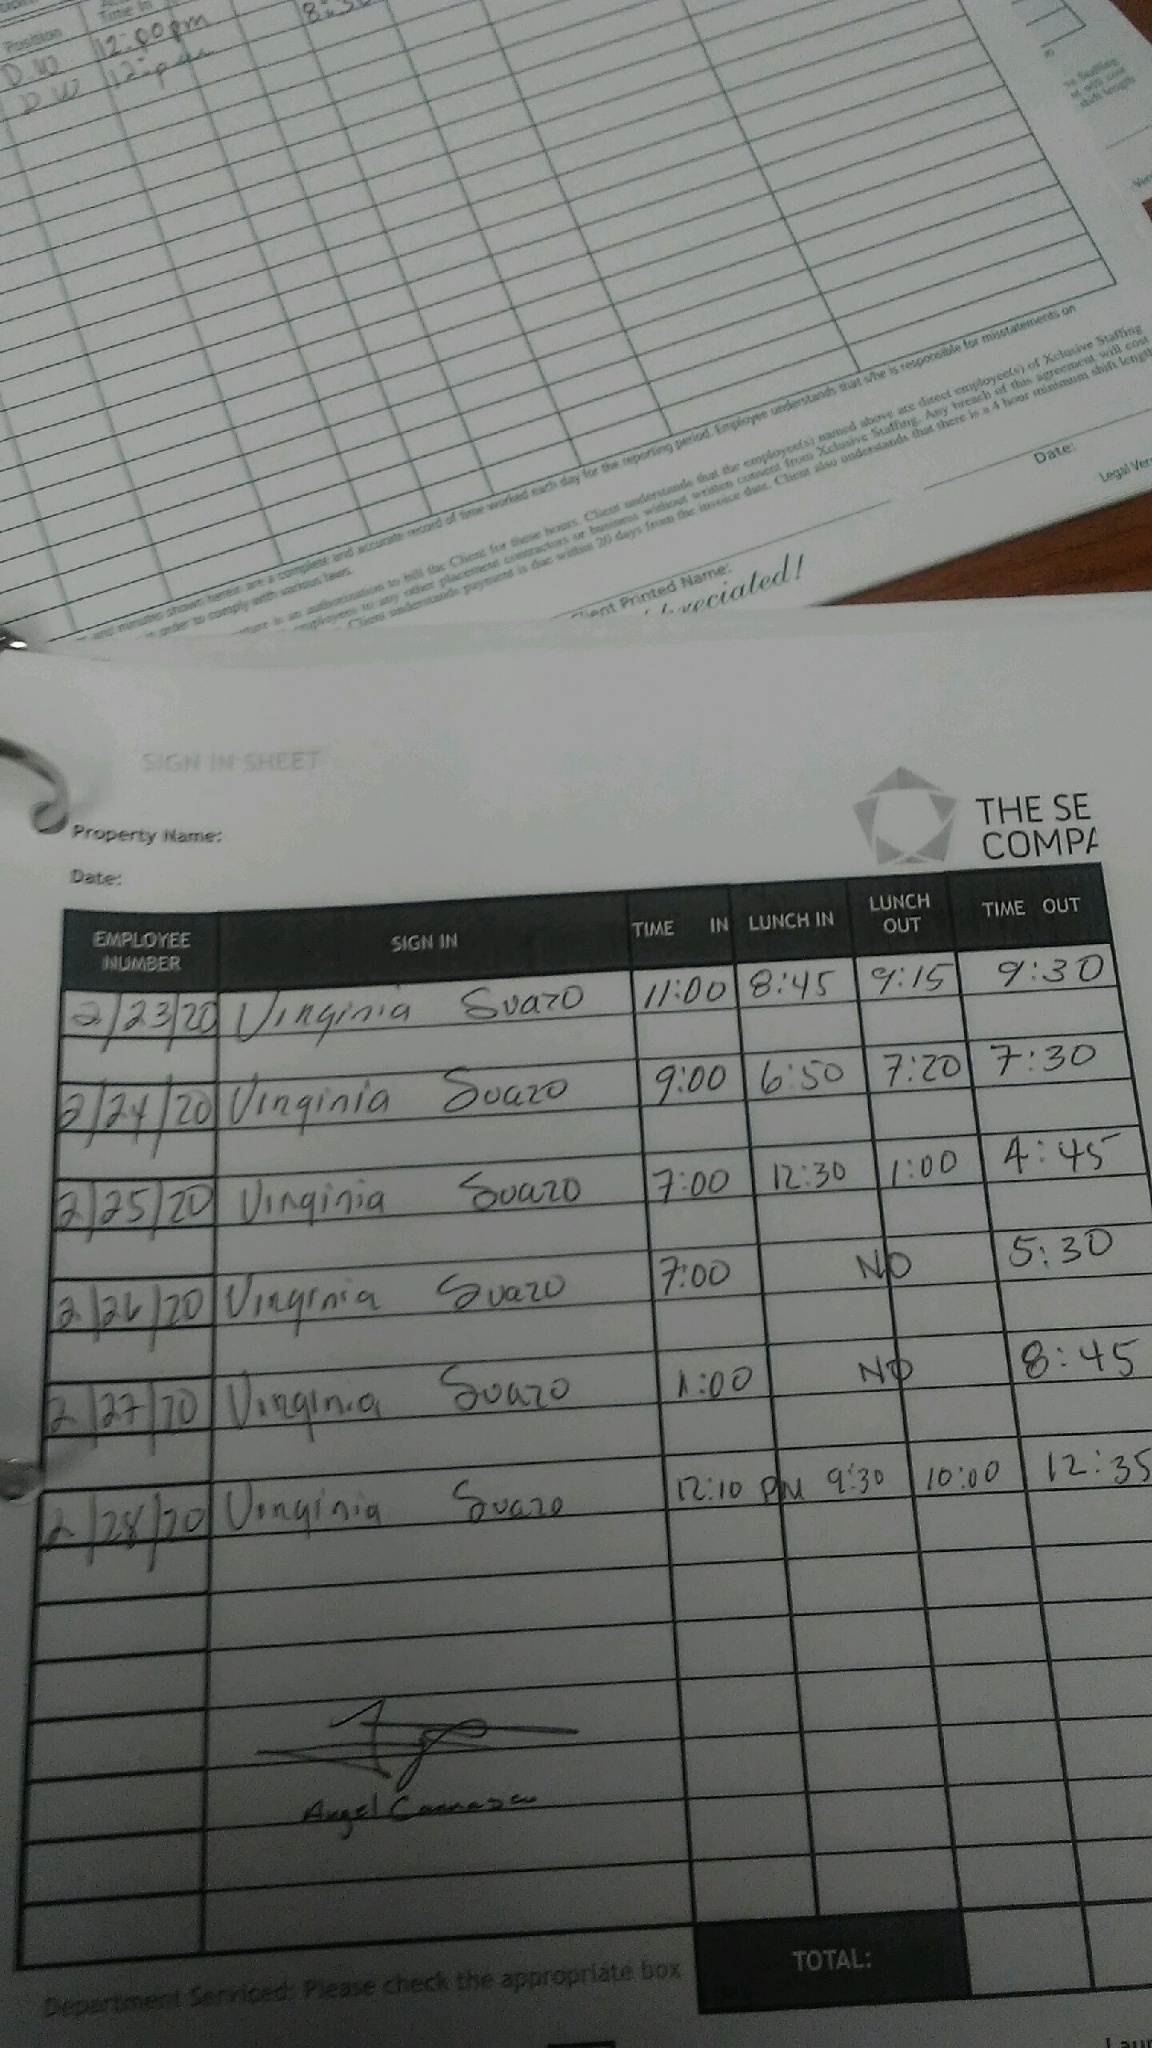 Position Time In
D.W 12:00pm 8:30
D W 12:pm
and minutes shown herein are a complete and accurate record of time worked each day for the reporting period. Employee understands that s/he is responsible for misstatements on
in order to comply with various laws.
is an authorization to bill the Client for these hours. Client understands that the employee(s) named above are direct employee(s) of Xclusive Staffing
employees to any other placement contractors or business without written consent from Xclusive Staffing. Any breach of this agreement will cost
Client understands payment is due within 20 days from the invoice date. Client also understands that there is a 4 hour minimum shift length
Date:
Legal Ver
Client Printed Name:
reciated!
SIGN IN SHEET
THE SE
COMPA
Property Name:
Date:
EMPLOYEE NUMBER SIGN IN TIME IN LUNCH IN LUNCH OUT TIME OUT
2/23/20 Virginia Suazo 11:00 8:45 9:15 9:30
2/24/20 Virginia Suazo 9:00 6:50 7:20 7:30
2/25/20 Virginia Suazo 7:00 12:30 1:00 4:45
2/26/20 Virginia Suazo 7:00 NO 5:30
2/27/20 Virginia Suazo 1:00 NO 8:45
2/28/20 Virginia Suazo 12:10 PM 9:30 10:00 12:35
Angel
TOTAL:
Department Serviced: Please check the appropriate box